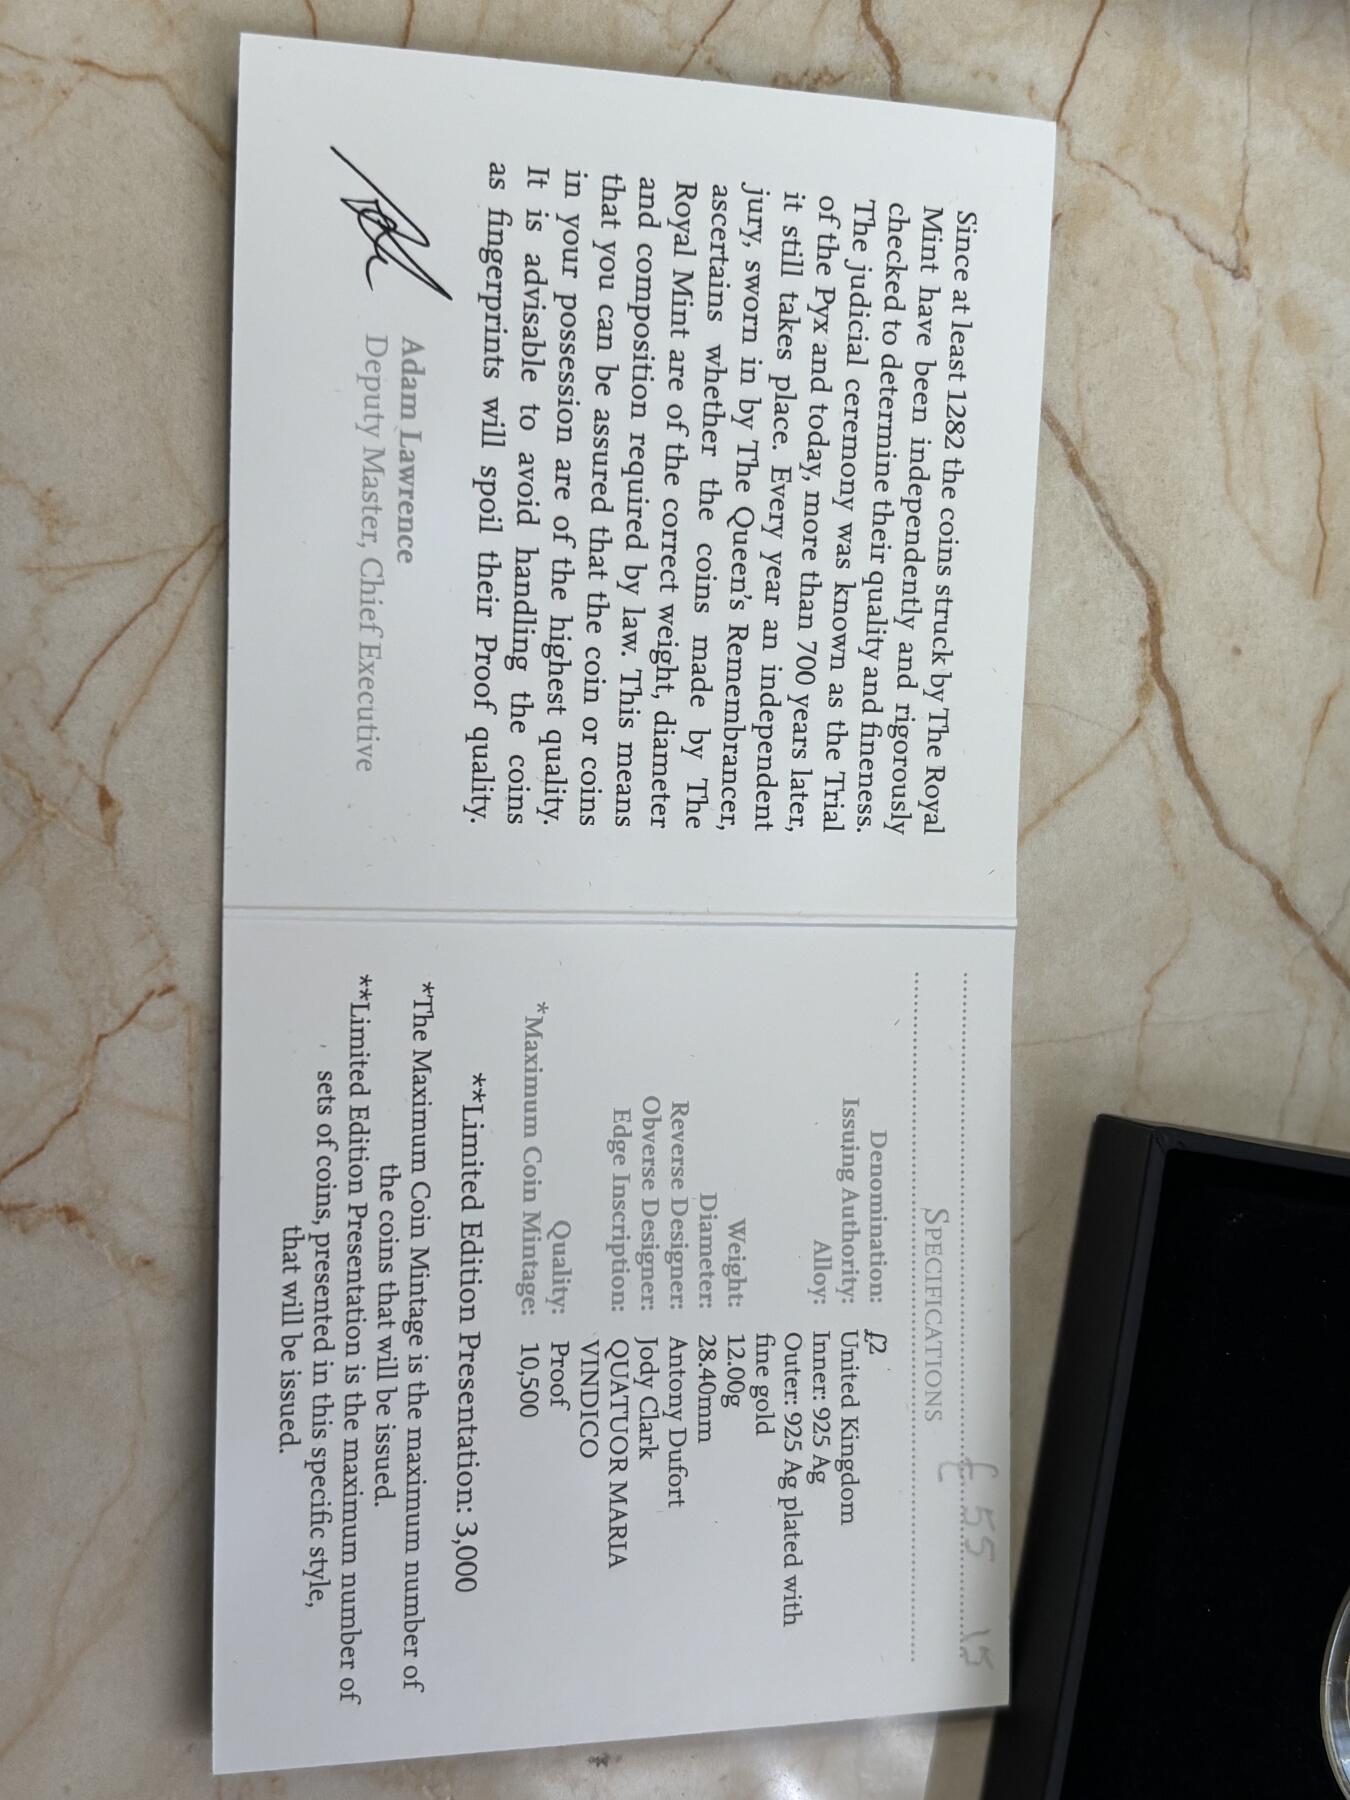 Since at least 1282 the coins struck by The Royal
Mint have been independently and rigorously
checked to determine their quality and fineness.
The judicial ceremony was known as the Trial
of the Pyx and today, more than 700 years later,
it still takes place. Every year an independent
jury, sworn in by The Queen's Remembrancer,
ascertains whether the coins made by The
Royal Mint are of the correct weight, diameter
and composition required by law. This means
that you can be assured that the coin or coins
in your possession are of the highest quality.
It is advisable to avoid handling the coins
as fingerprints will spoil their Proof quality.
Adam Lawrence
Deputy Master, Chief Executive
£55 15
SPECIFICATIONS
Denomination: £2
Issuing Authority: United Kingdom
Alloy: Inner: 925 Ag
Outer: 925 Ag plated with
fine gold
Weight: 12.00g
Diameter: 28.40mm
Reverse Designer: Antony Dufort
Obverse Designer: Jody Clark
Edge Inscription: QUATUOR MARIA
VINDICO
Quality: Proof
*Maximum Coin Mintage: 10,500
**Limited Edition Presentation: 3,000
*The Maximum Coin Mintage is the maximum number of
the coins that will be issued.
**Limited Edition Presentation is the maximum number of
sets of coins, presented in this specific style,
that will be issued.